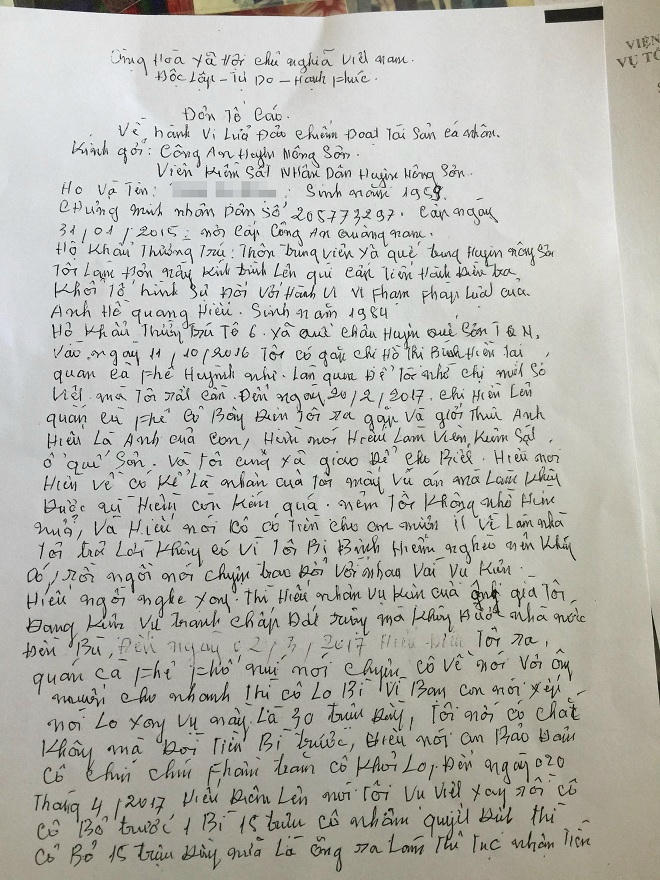 Cộng Hòa Xã Hội chủ nghĩa Việt nam.
Độc Lập - Tự Do - Hạnh Phúc.
VIỆN
VỤ TỐ
Đơn Tố Cáo.
Về hành Vi Lừa Đảo chiếm Đoạt Tài Sản cá nhân.
Kính gởi: Công An Huyện Nông Sơn.
Viện Kiểm Sát Nhân Dân Huyện Nông Sơn.
Họ Và Tên: Sinh năm 1959.
Chứng minh nhân Dân Số 205773297. Cấp ngày
31/01/2015 nơi cấp Công An Quảng nam.
Hộ Khẩu Thường Trú: Thôn trung viên Xã quế trung Huyện nông Sơn
Tôi Làm Đơn này Kính trình Lên quí cấp Tiến Hành Điều tra
Khởi Tố hình Sự Đối Với Hành Vi Vi Phạm Pháp Luật của
Anh Hồ quang Hiếu. Sinh năm 1984
Hộ Khẩu Thường Trú Tổ 6. Xã Quế Châu Huyện Quế Sơn T Q N.
Vào ngày 11/10/2016 Tôi có gặp chị Hồ Thị Bình Hiền Tại
quán cà phê Huỳnh nhi. Lân quen Để Tôi nhờ chị một Số
Việt mà Tôi rất cần. Đến ngày 20/2/2017. chị Hiền Lên
quán cà phê cô Bảy Điện Tôi ra gặp Và giới Thiệu Anh
Hiếu Là Anh của con, Hiền nói Hiếu Làm Viện Kiểm Sát
ở quế Sơn. Và Tôi cũng Xã giao Để cho Biết. Hiếu nói
Hiền Về có Kể Là nhận của Tôi mấy Vụ án mà Làm Không
Được vì Hiền còn Kém quá. nên Tôi Không nhờ Hiền
nữa, Và Hiếu nói cô có Tiền cho con mượn ít Về Làm nhà
Tôi trả Lời Không có Vì Tôi Bị Bệnh Hiểm nghèo nên Không
có, rồi ngồi nói chuyện trao Đổi Với nhau Vài Vụ Kiện.
Hiếu ngồi nghe Xong. Thì Hiếu nhận Vụ Kiện của già Tôi
Đang Kiện Vụ tranh chấp Đất rừng mà Không Được nhà nước
Đền Bù, Đến ngày 02/3/2017 Hiếu Điện Tôi ra,
quán cà phê phố núi nói chuyện cô Về nói Với ông
muốn cho nhanh Thì cô Lo Bì Vì Ban con nói Xếp
nói Lo Xong Vụ này Là 30 triệu Đồng, Tôi nói có chắc
Không mà Đòi Tiền Bì trước, Hiếu nói con Bảo Đảm
cô chín chín Phần trăm cô Khỏi Lo, Đến ngày 020
Tháng 4/2017 Hiếu Điện Lên nói Tôi Vụ Việt Xong rồi cô
cô Bỏ trước 1 Bì 15 triệu cô nhận quyết Định thì
cô Bỏ 15 triệu Đồng nữa Là ông ra Làm Thủ Tục nhận Tiền